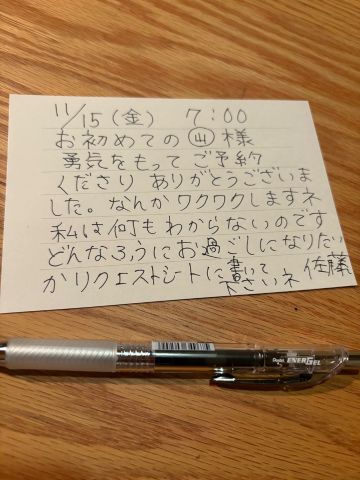 11/15(金) 7:00
お初めての㊤様
勇気をもってご予約
くださり ありがとうございま
した。なんかワクワクしますネ
私は何もわからないのです
どんなふうにお過ごしになりたい
かリクエストシートに書いて
下さいネ 佐藤
Pentel
ENERGEL